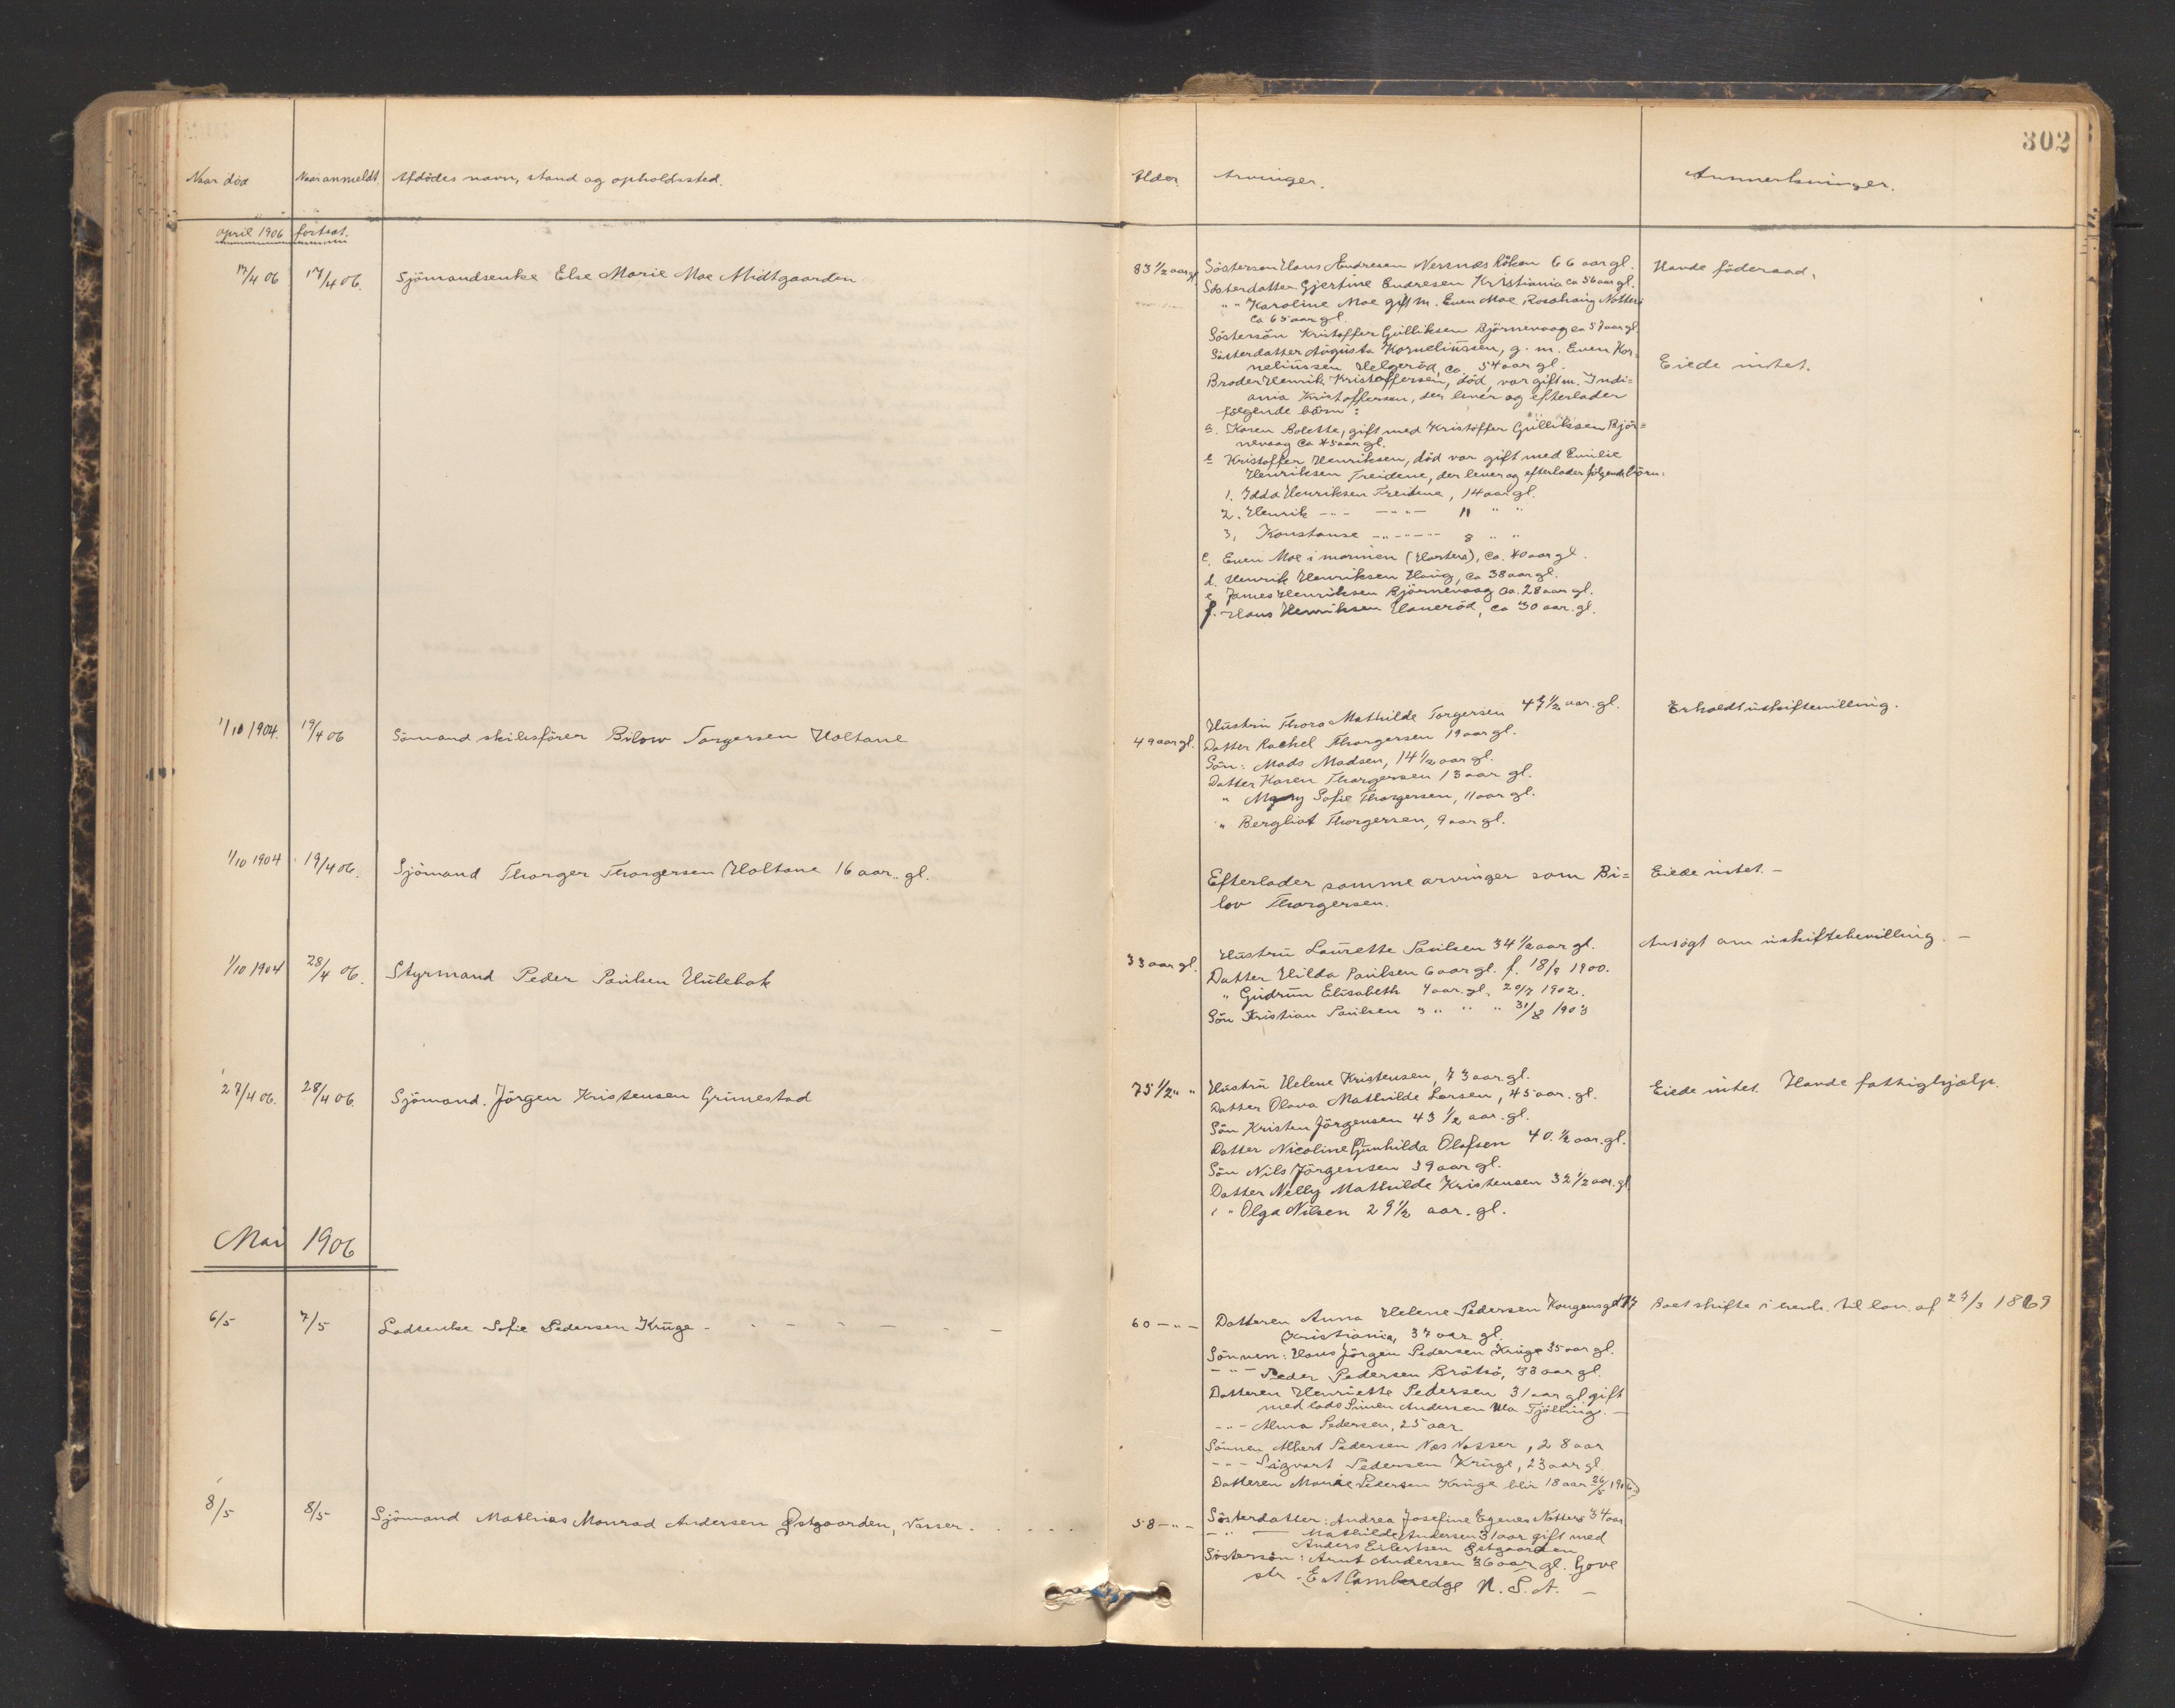 302
Naar död Naar anmeldt Afdödes navn, stand og opholdssted. Alder Arvinger. Anmerkninger.
april 1906 fortsat.
17/4 06 17/4 06. Sjömandsenke Else Marie Moe Midtgaarden 83 1/2 aar gl.
Söstersøn Hans Andresen Nersnæs Röken 66 aar gl. Havde föderaad.
Sösterdatter Gjertine Endresen Kristiania ca 56 aar gl.
" " Karoline Moe gift m. Even Moe Rosahaug Nötterö
ca 65 aar gl.
Söstersön Kristoffer Gulliksen Bjørnevaag ca 57 aar gl.
Sösterdatter Augusta Korneliussen, g. m. Even Kor=
neliussen Helgeröd, ca. 54 aar gl. Eiede intet.
Broder Henrik Kristoffersen, död, var gift m. Indi=
ania Kristoffersen, der lever og efterlader
fölgende börn:
a. Karen Bolette, gift med Kristoffer Gulliksen Bjør=
nevaag ca 45 aar gl.
b Kristoffer Henriksen, död var gift med Emilie
Henriksen Treidene, der lever og efterlader fölgende börn:
1. Idda Henriksen Treidene, 14 aar gl.
2. Henrik -"- -"- 11 " "
3, Konstanse -"- -"- 8 " "
c. Even Moe i marinen (Horten), ca. 40 aar gl.
d. Henrik Henriksen Haug, ca 38 aar gl.
e James Henriksen Bjørnevaag ca. 28 aar gl.
f. Hans Henriksen Haneröd, ca 30 aar. gl.
1/10 1904. 19/4 06 Sömand skibsförer Bilow Torgersen Holtane 49 aar gl.
Hustru Thora Mathilde Torgersen 47 1/2 aar. gl. Erholdt uskiftevilling.
Datter Rachel Thorgersen 19 aar gl.
Sön: Mads Madsen, 14 1/2 aar gl.
Datter Karen Thorgersen 13 aar gl.
" Mary Sofie Thorgersen, 11 aar gl.
" Bergliot Thorgersen, 9 aar gl.
1/10 1904 19/4 06. Sjömand Thorger Thorgersen Holtane 16 aar. gl.
Efterlader samme arvinger som Bi= Eiede intet. -
lov Thorgersen.
1/10 1904 28/4 06. Styrmand Peder Paulsen Hulebak 33 aar gl.
Hustru Laurette Paulsen 34 1/2 aar gl. Ansögt om uskiftebevilling. -
Datter Hilda Paulsen 6 aar gl. f. 18/9 1900.
" Gudrun Elisabeth 4 aar. gl. 20/7 1902.
Sön Kristian Paulsen 3 " " " 31/8 1903
27/4 06. 28/4 06. Sjömand. Jörgen Kristensen Grimestad 75 1/2 " "
Hustru Helene Kristensen, 73 aar gl. Eiede intet. Havde fattighjælp.
Datter Olava Mathilde Larsen, 45 aar. gl.
Sön Kristen Jörgensen 43 1/2 aar. gl.
Datter Nicoline Gunhilda Olafsen 40. 1/2 aar. gl.
Sön Nils Jörgensen 39 aar gl.
Datter Nelly Mathilde Kristensen 32 1/2 aar. gl
" Olga Nilsen 29 1/2 aar. gl.
Mai 1906
6/5 7/5 Lodsenke Sofie Pedersen Kruge - - - - - - - 60 -"-
Datteren Anna Helene Pedersen Kongensgd 17 Boet skifte i henh. til lov. af 27/3 1869
Kristiania, 37 aar gl.
Sönnen: Hans Jörgen Pedersen Kruge 35 aar gl.
-"- Peder Pedersen Brötsö, 33 aar gl.
Datteren Henriette Pedersen 31 aar gl. gift
med lods Simen Andersen Ula Tjölling. -
-"- Alma Pedersen, 25 aar
Sönnen Albert Pedersen Nes Vasser, 28 aar
-"- Sigvart Pedersen Kruge, 23 aar gl.
Datteren Marie Pedersen Kruge blir 18 aar 26/5 1906
8/5 8/5 Sjömand Mathias Monrad Andersen Østgaarden, Vasser. . . . . 58 -"-
Sösterdatter: Andrea Josefine Egenes Nötterö 34 aar
-"- Mathilde Andersen 31 aar gift med
Anders Eilertsen Østgaarden
Söstersön: Arnt Andersen 36 aar gl. Gove
str. E at Camberedge N. S. A. -